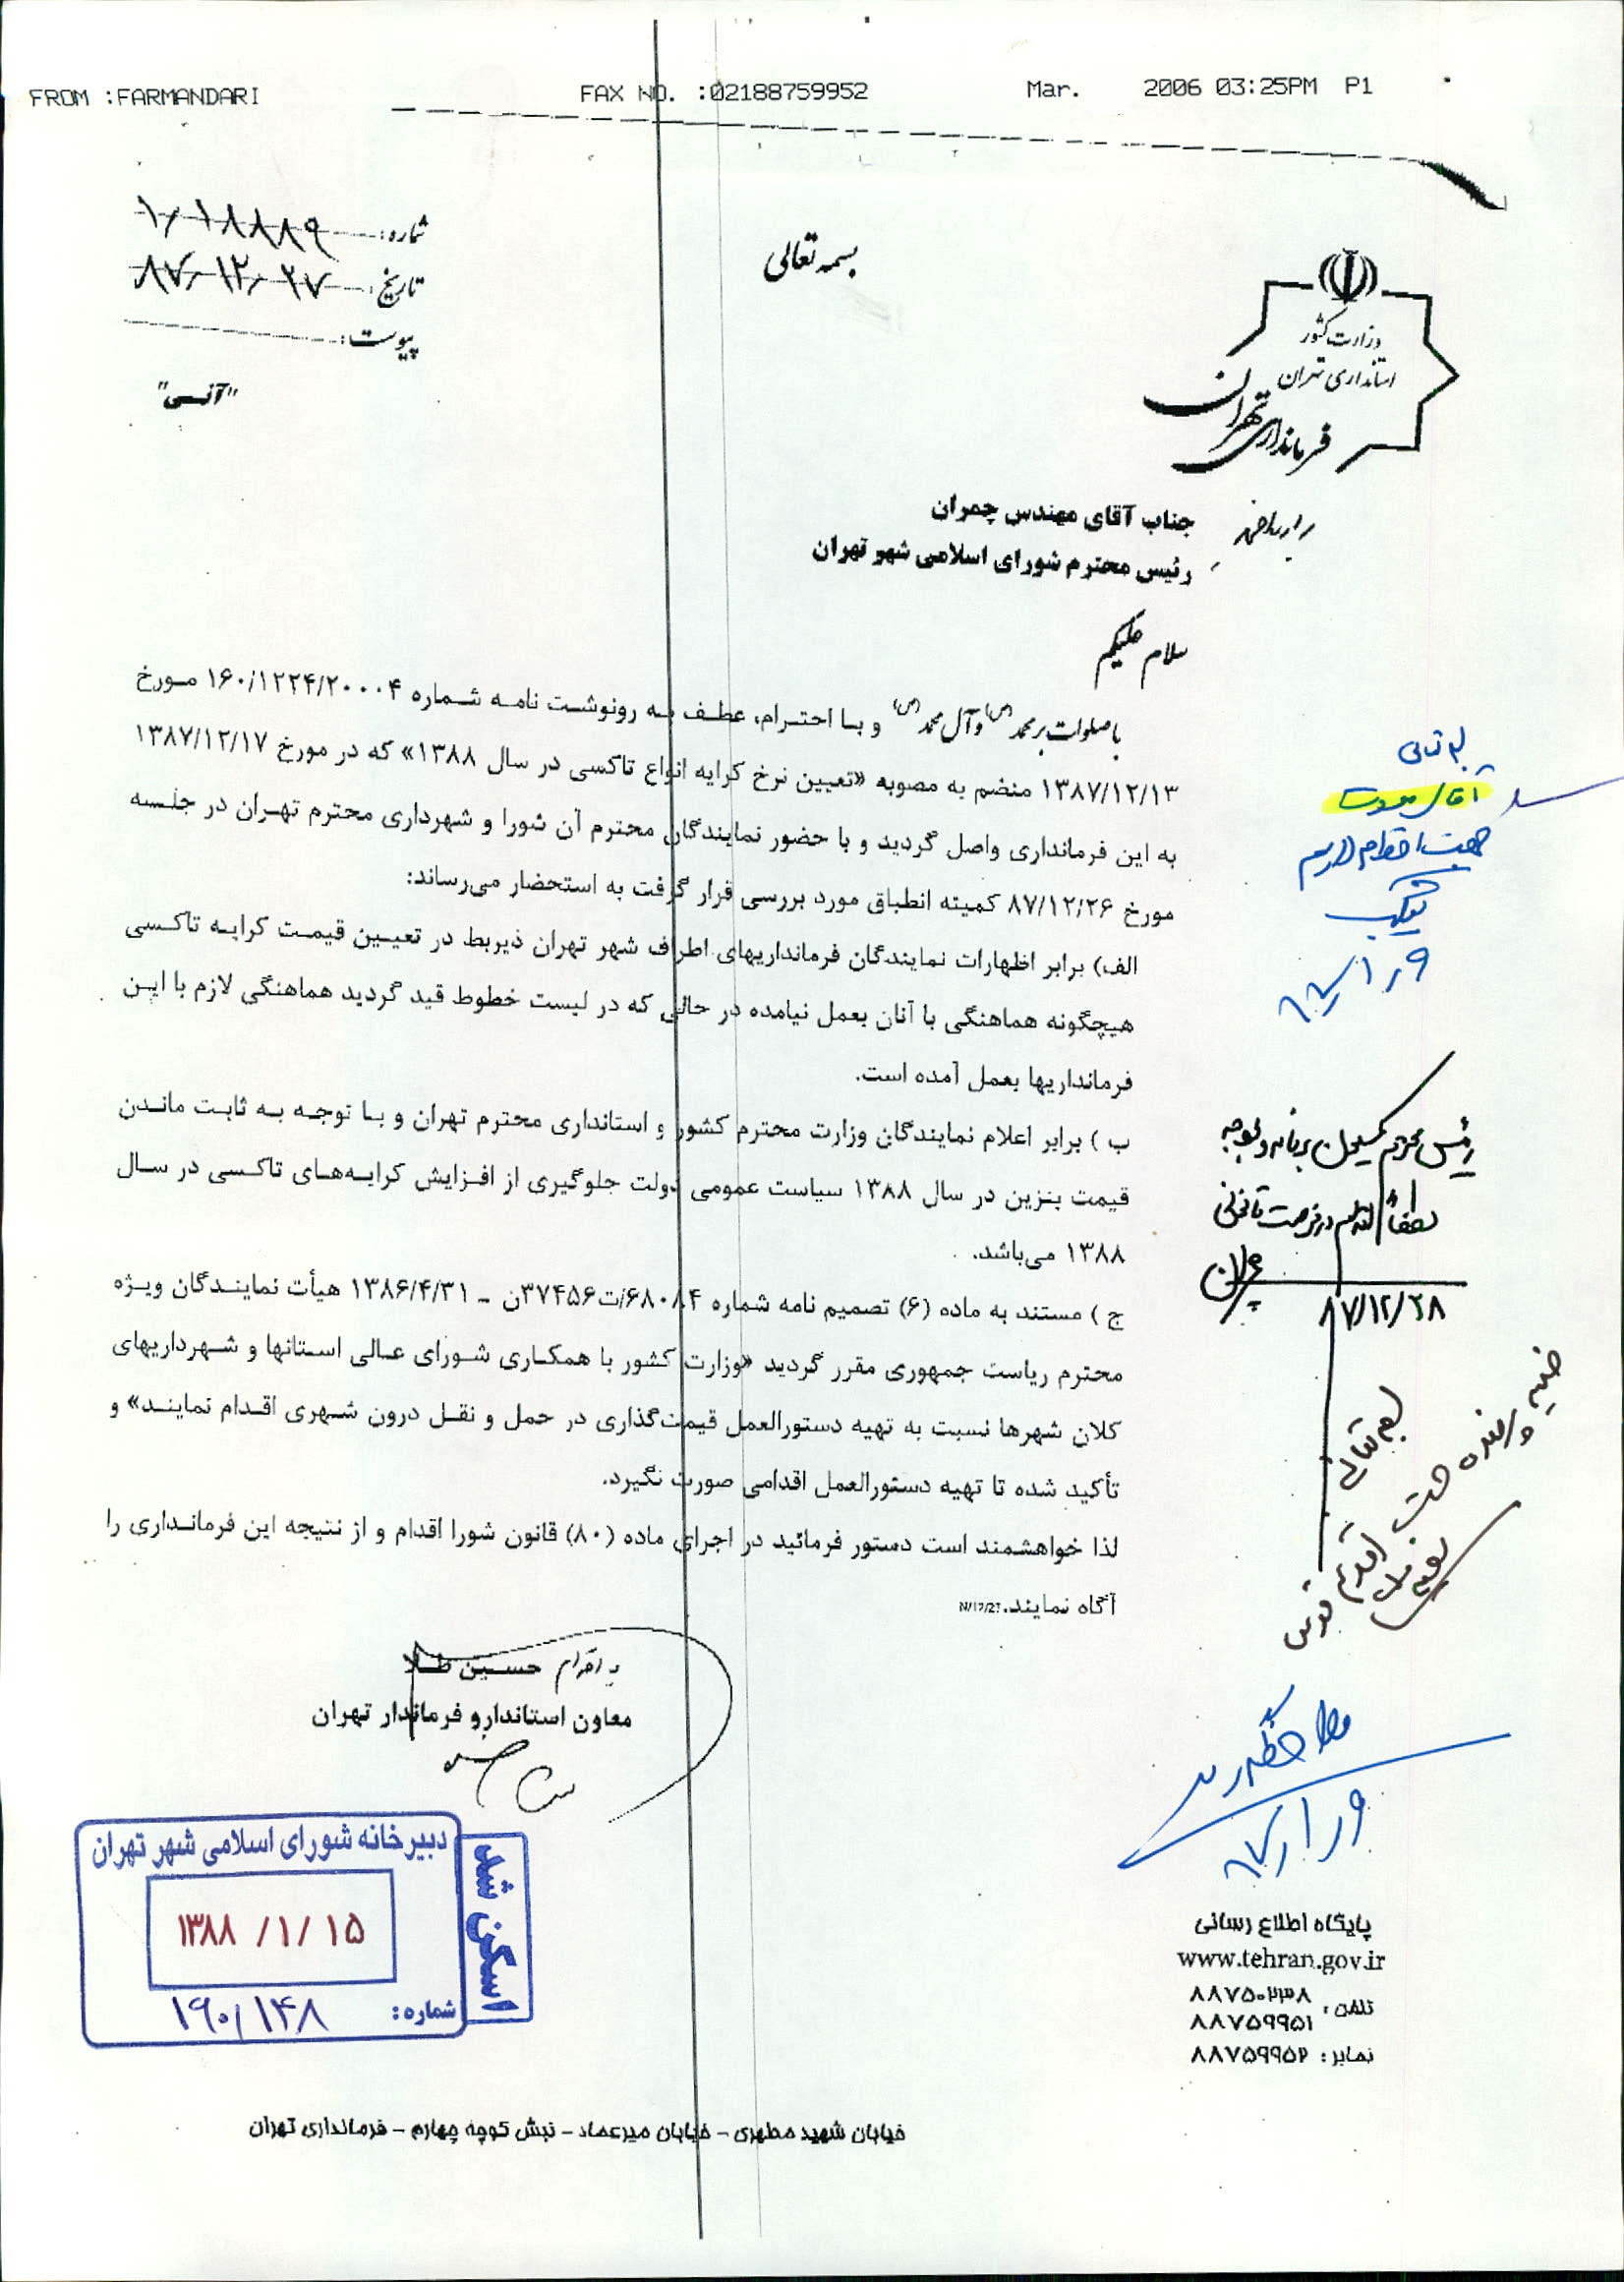 FROM :FARMANDARI FAX NO. :02188759952 Mar. 2006 03:25PM P1
بسمه تعالی
شماره: ۱/۱۸۸۸۹
تاریخ: ۸۷/۱۲/۲۷
پیوست:
"آنی"
وزارت کشور
استانداری تهران
فرمانداری تهران
جناب آقای مهندس چمران
رئیس محترم شورای اسلامی شهر تهران
سلام علیکم
با صلوات بر محمد (ص) و آل محمد (ص) و با احترام، عطف به رونوشت نامه شماره ۱۶۰/۱۲۲۴/۲۰۰۰۴ مورخ
۱۳۸۷/۱۲/۱۳ منضم به مصوبه «تعیین نرخ کرایه انواع تاکسی در سال ۱۳۸۸» که در مورخ ۱۳۸۷/۱۲/۱۷
به این فرمانداری واصل گردید و با حضور نمایندگان محترم آن شورا و شهرداری محترم تهران در جلسه
مورخ ۸۷/۱۲/۲۶ کمیته انطباق مورد بررسی قرار گرفت به استحضار می‌رساند:
الف) برابر اظهارات نمایندگان فرمانداریهای اطراف شهر تهران ذیربط در تعیین قیمت کرایه تاکسی
هیچگونه هماهنگی با آنان بعمل نیامده در حالی که در لیست خطوط قید گردید هماهنگی لازم با این
فرمانداریها بعمل آمده است.
ب ) برابر اعلام نمایندگان وزارت محترم کشور و استانداری محترم تهران و با توجه به ثابت ماندن
قیمت بنزین در سال ۱۳۸۸ سیاست عمومی دولت جلوگیری از افزایش کرایه‌های تاکسی در سال
۱۳۸۸ می‌باشد.
ج ) مستند به ماده (۶) تصمیم نامه شماره ۶۸۰۸۴/ت۳۷۴۵۶ن ـ ۱۳۸۶/۴/۳۱ هیأت نمایندگان ویژه
محترم ریاست جمهوری مقرر گردید «وزارت کشور با همکاری شورای عالی استانها و شهرداریهای
کلان شهرها نسبت به تهیه دستورالعمل قیمت‌گذاری در حمل و نقل درون شهری اقدام نمایند» و
تأکید شده تا تهیه دستورالعمل اقدامی صورت نگیرد.
لذا خواهشمند است دستور فرمائید در اجرای ماده (۸۰) قانون شورا اقدام و از نتیجه این فرمانداری را
آگاه نمایند.
با احترام حسین طلا
معاون استاندار و فرماندار تهران
بسمه تعالی
جهت اقدام لازم
رئیس محترم کمیسیون برنامه و بودجه
لطفاً اقدام در فرصت قانونی
چمران
۸۷/۱۲/۲۸
بسمه تعالی
ملاحظه شد
دبیرخانه شورای اسلامی شهر تهران
۱۳۸۸ /۱/ ۱۵
شماره: ۱۹۰/۱۴۸
اسکن شد
پایگاه اطلاع رسانی
www.tehran.gov.ir
تلفن: ۸۸۷۵۰۲۳۸
۸۸۷۵۹۹۵۱
نمابر: ۸۸۷۵۹۹۵۲
خیابان شهید مطهری - خیابان میرعماد - نبش کوچه چهارم - فرمانداری تهران